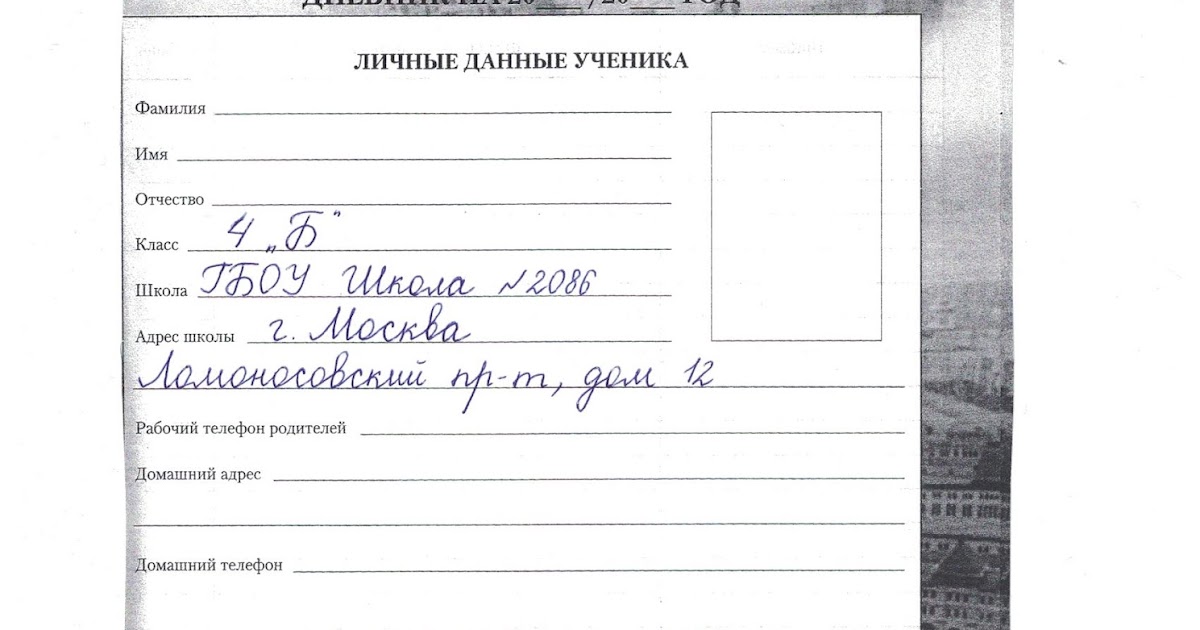 ДНЕВНИК НА 20___/20___ ГОД
ЛИЧНЫЕ ДАННЫЕ УЧЕНИКА
Фамилия
Имя
Отчество
Класс 4 „Б"
Школа ГБОУ Школа №2086
Адрес школы г. Москва
Ломоносовский пр-т, дом 12
Рабочий телефон родителей
Домашний адрес
Домашний телефон